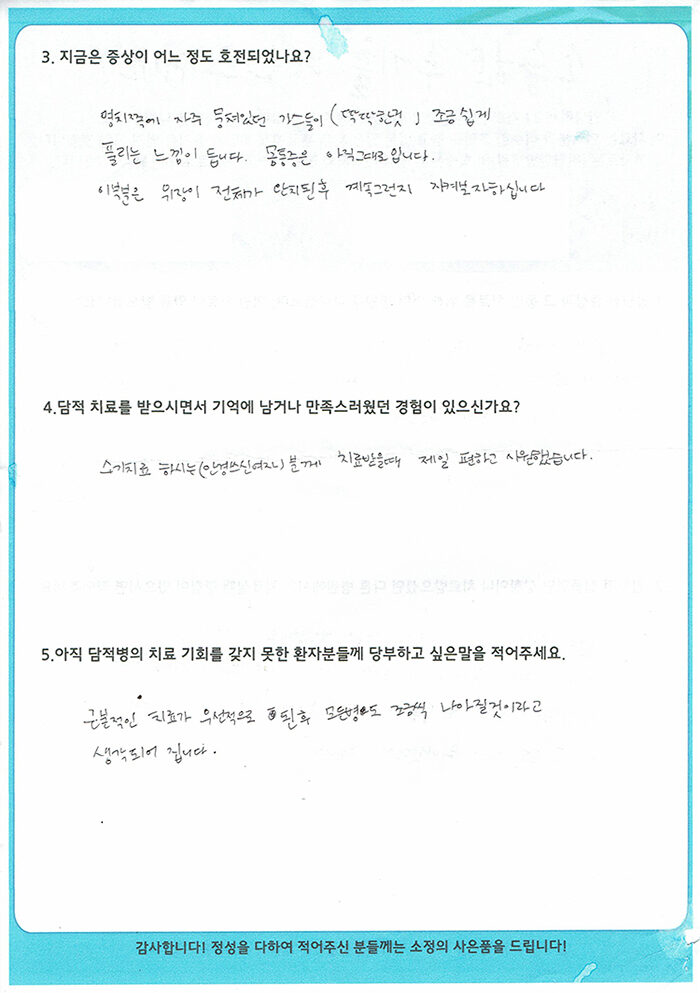 3. 지금은 증상이 어느 정도 호전되었나요?
명치쪽에 자주 뭉쳐있던 가스들이 (딱딱한것) 조금쉽게
풀리는 느낌이 듭니다. 몸통증은 아직그대로입니다.
이부분은 위장이 전체가 안치된후 계속그런지 지켜보자하십니다
4.담적 치료를 받으시면서 기억에 남거나 만족스러웠던 경험이 있으신가요?
소기치료 하시는(안경쓰신여자) 분께 치료받을때 제일 편하고 시원했습니다.
5.아직 담적병의 치료 기회를 갖지 못한 환자분들께 당부하고 싶은말을 적어주세요.
근본적인 치료가 우선적으로 된후 모든병도 조금씩 나아질것이라고
생각되어 집니다.
감사합니다! 정성을 다하여 적어주신 분들께는 소정의 사은품을 드립니다!